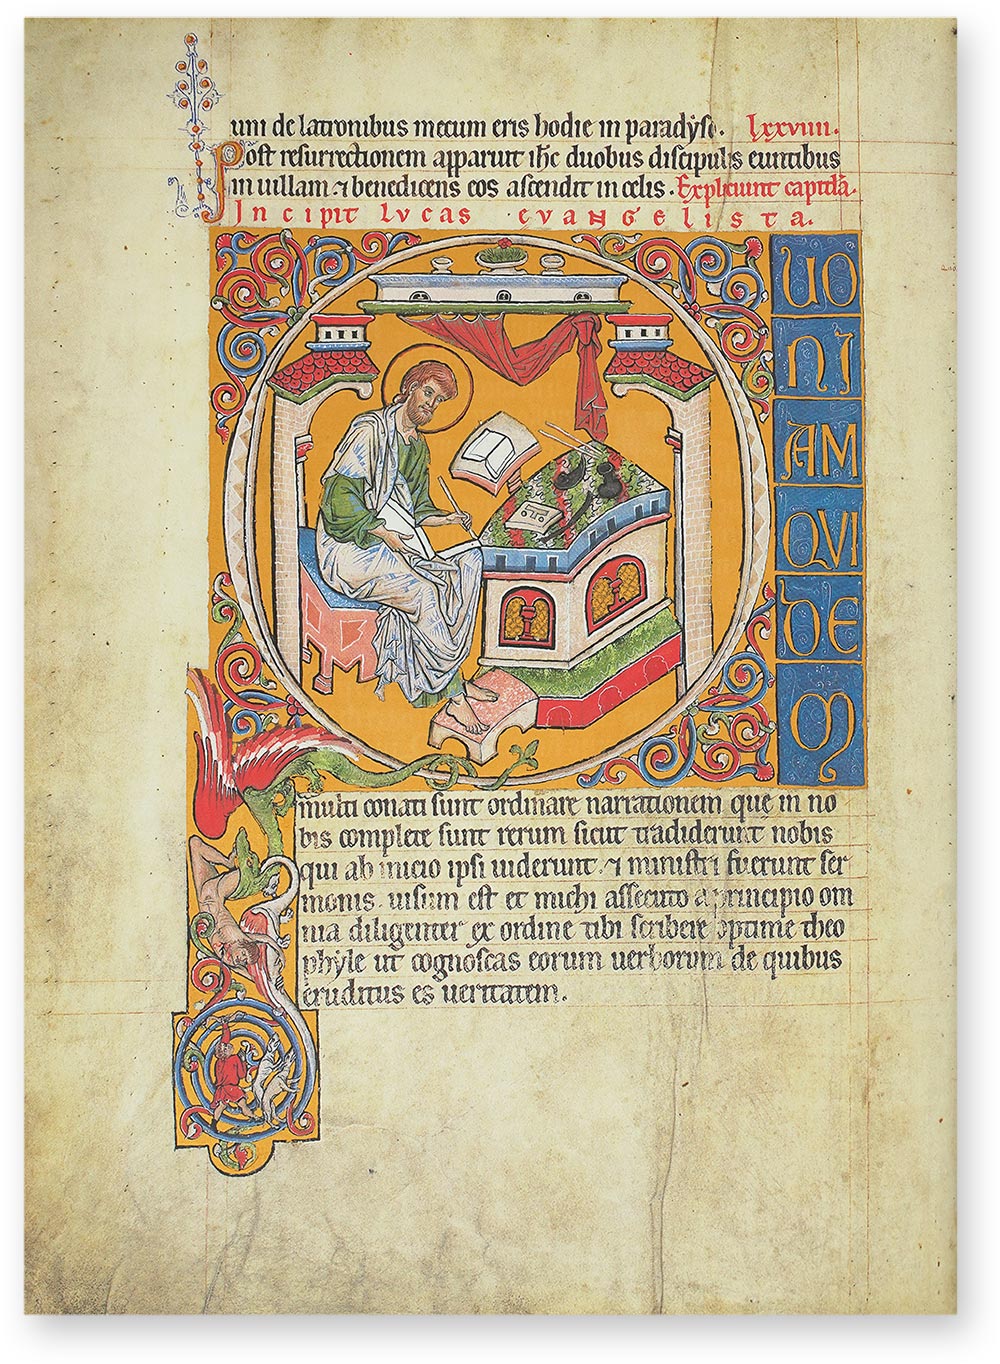 uni de latronibus mecum eris hodie in paradyso. lxxviiii.
Post resurrectionem apparuit ihc duobus discipulis euntibus
in uillam ⁊ benedicens eos ascendit in celis. Expliciunt capitula.
Incipit lvcas evangelista.
QUO
NI
AM
QVI
DE
M
multi conati sunt ordinare narrationem que in no
bis complete sunt rerum sicut tradiderunt nobis
qui ab inicio ipsi uiderunt. ⁊ ministri fuerunt ser
monis. uisum est et michi assecuto a principio om
nia diligenter ex ordine tibi scribere optime theo
phyle ut cognoscas eorum uerborum de quibus
eruditus es ueritatem.